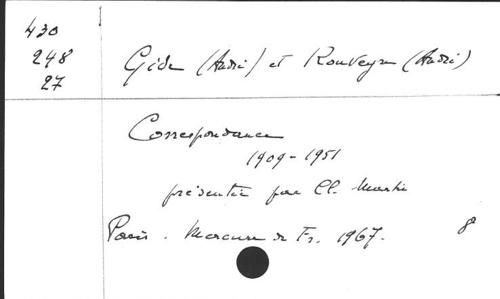 430
248
27
Gide (André) et Rouveyre (André)
Correspondance
1909-1951
présentée par Cl. Martin
Paris. Mercure de Fr. 1967. 8